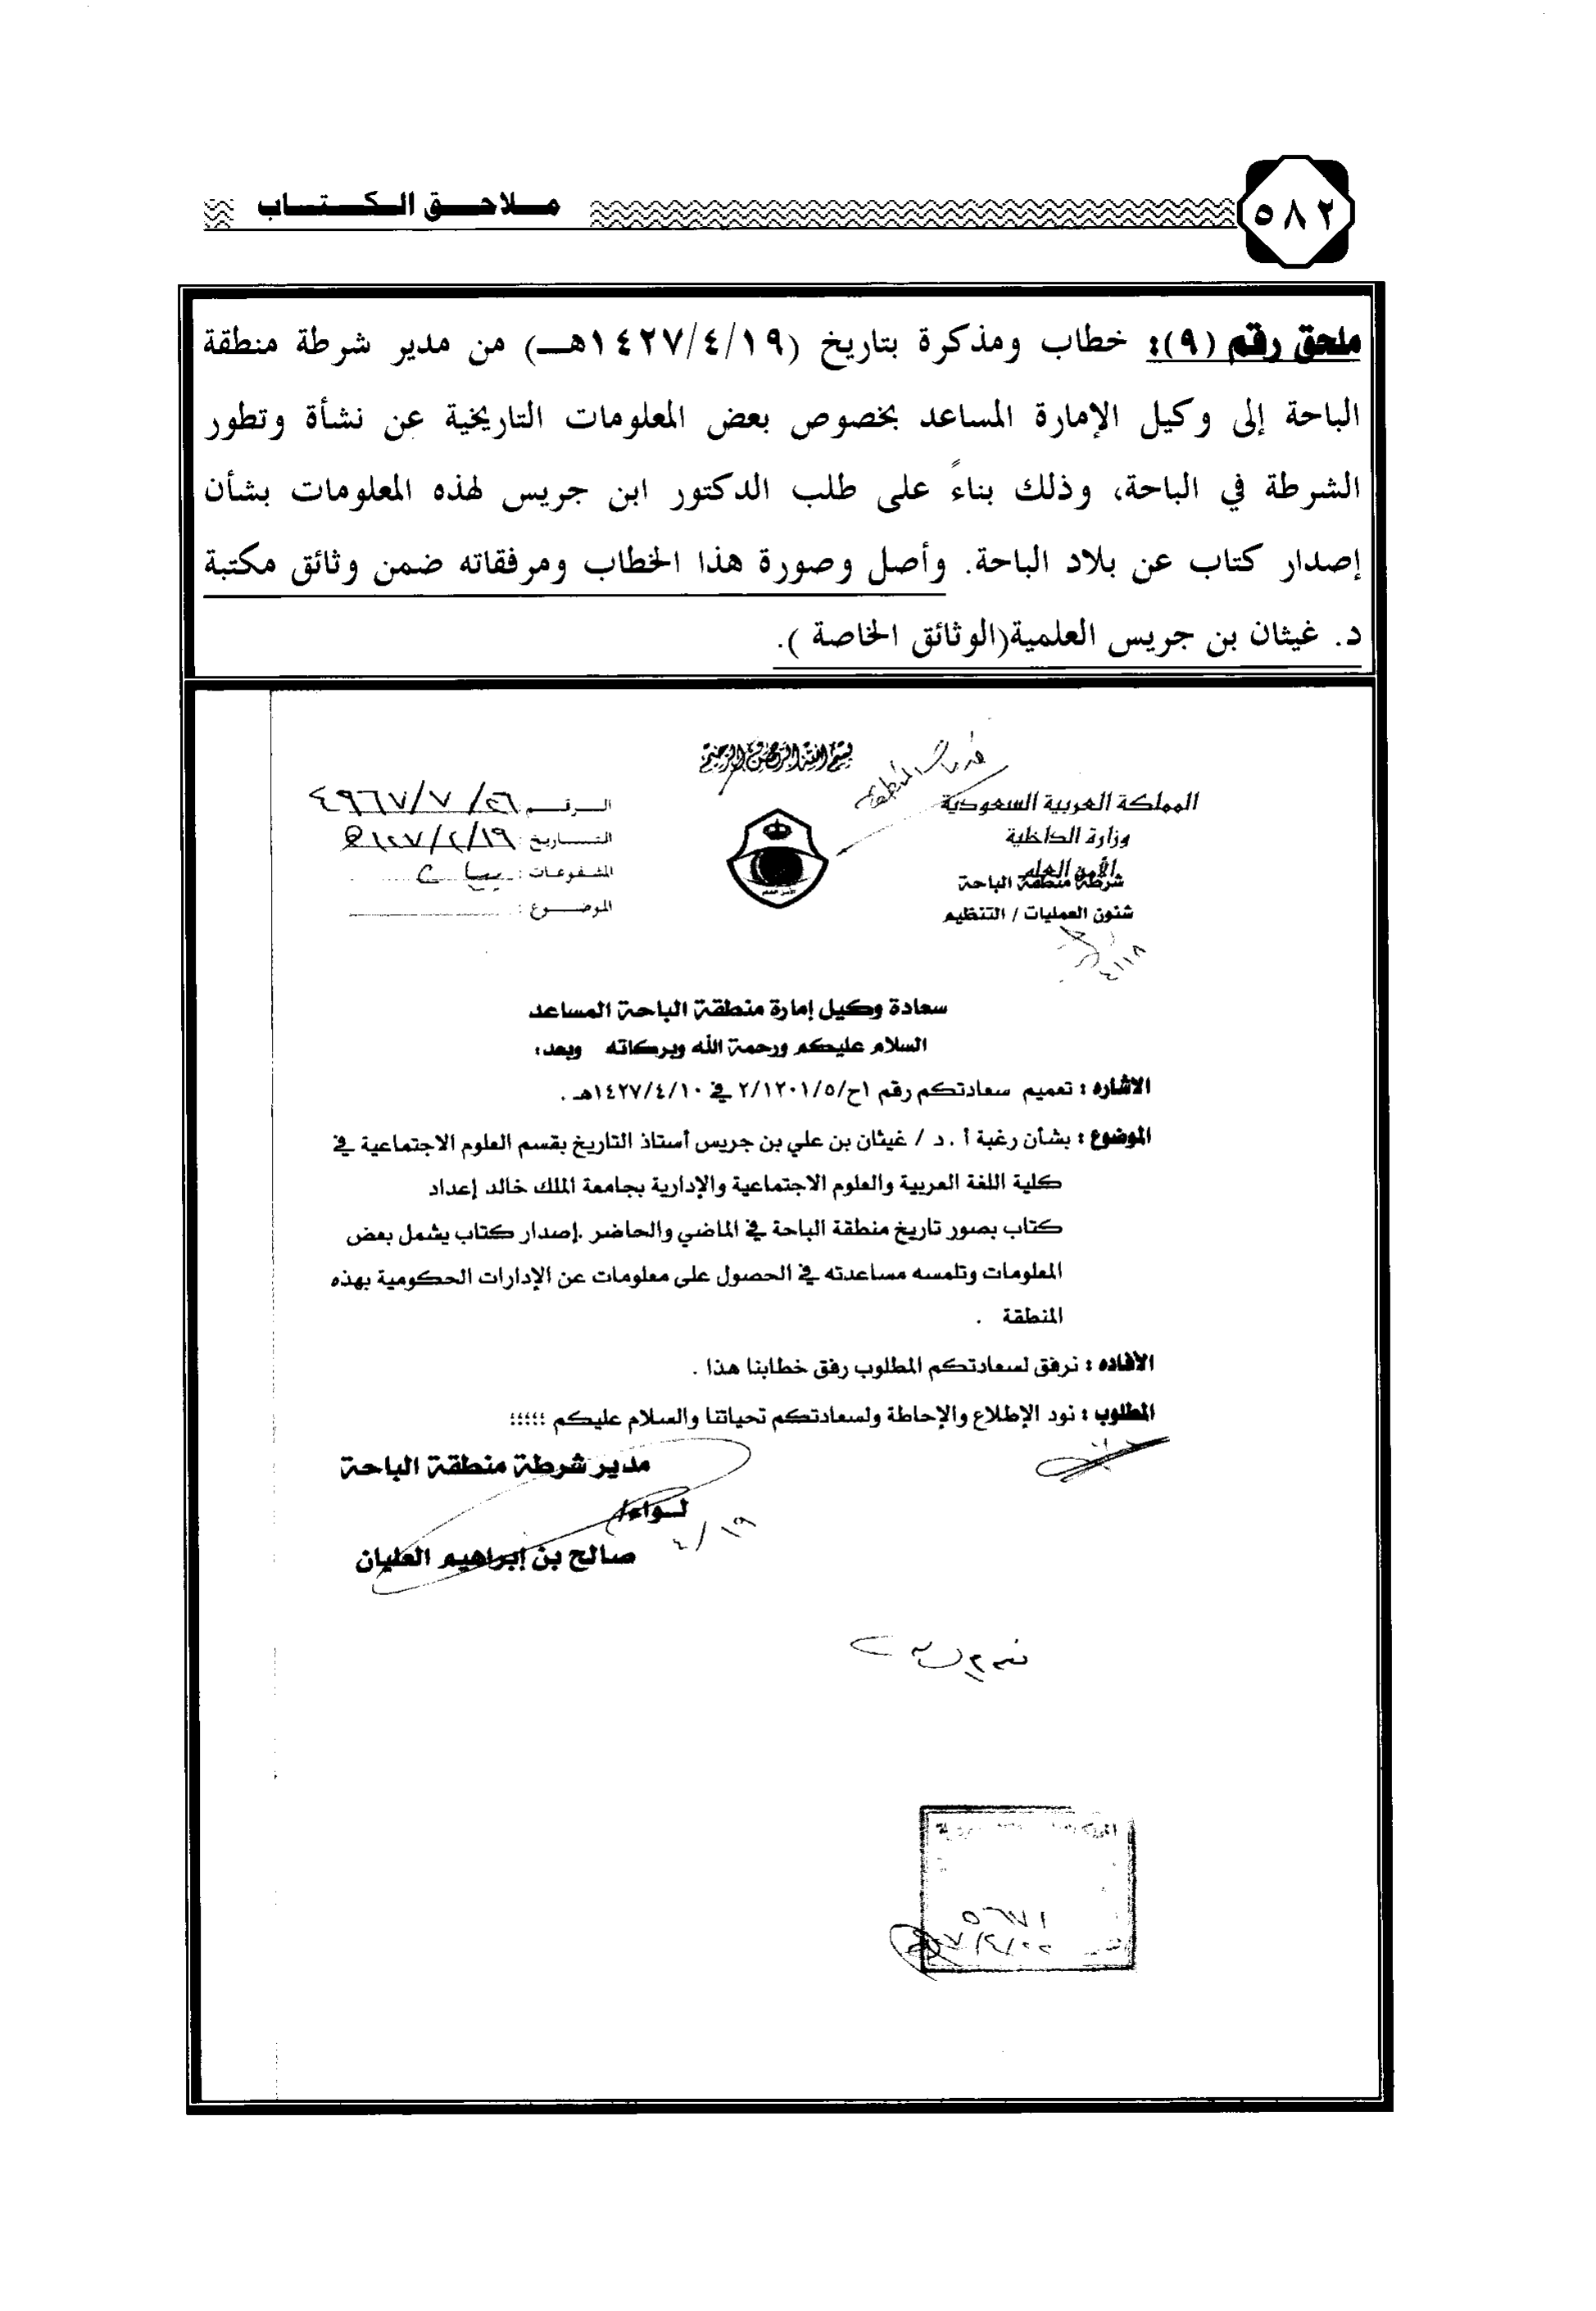 ٥٨٢
ملاحق الكتاب
ملحق رقم (٩): خطاب ومذكرة بتاريخ (١٤٢٧/٤/١٩هـ) من مدير شرطة منطقة
الباحة إلى وكيل الإمارة المساعد بخصوص بعض المعلومات التاريخية عن نشأة وتطور
الشرطة في الباحة، وذلك بناءً على طلب الدكتور ابن جريس لهذه المعلومات بشأن
إصدار كتاب عن بلاد الباحة. وأصل وصورة هذا الخطاب ومرفقاته ضمن وثائق مكتبة
د. غيثان بن جريس العلمية(الوثائق الخاصة ).
بسم الله الرحمن الرحيم
المملكة العربية السعودية
وزارة الداخلية
الأمن العام
شرطة منطقة الباحة
شئون العمليات / التنظيم
٤/١٨
الرقم :
التاريخ :
المشفوعات :
الموضوع :
سعادة وكيل إمارة منطقة الباحة المساعد
السلام عليكم ورحمة الله وبركاته وبعد؛
الاشاره : تعميم سعادتكم رقم ١ح/٢/١٢٠١/٥ في ١٤٢٧/٤/١٠هـ .
الموضوع : بشأن رغبة أ .د / غيثان بن علي بن جريس أستاذ التاريخ بقسم العلوم الاجتماعية في
كلية اللغة العربية والعلوم الاجتماعية والإدارية بجامعة الملك خالد إعداد
كتاب بصور تاريخ منطقة الباحة في الماضي والحاضر .إصدار كتاب يشمل بعض
المعلومات وتلمسه مساعدته في الحصول على معلومات عن الإدارات الحكومية بهذه
المنطقة .
الأفاده : نرفق لسعادتكم المطلوب رفق خطابنا هذا .
المطلوب : نود الإطلاع والإحاطة ولسعادتكم تحياتنا والسلام عليكم ؛؛؛؛؛
مدير شرطة منطقة الباحة
لـواء/
٤/١٩
صالح بن إبراهيم العليان